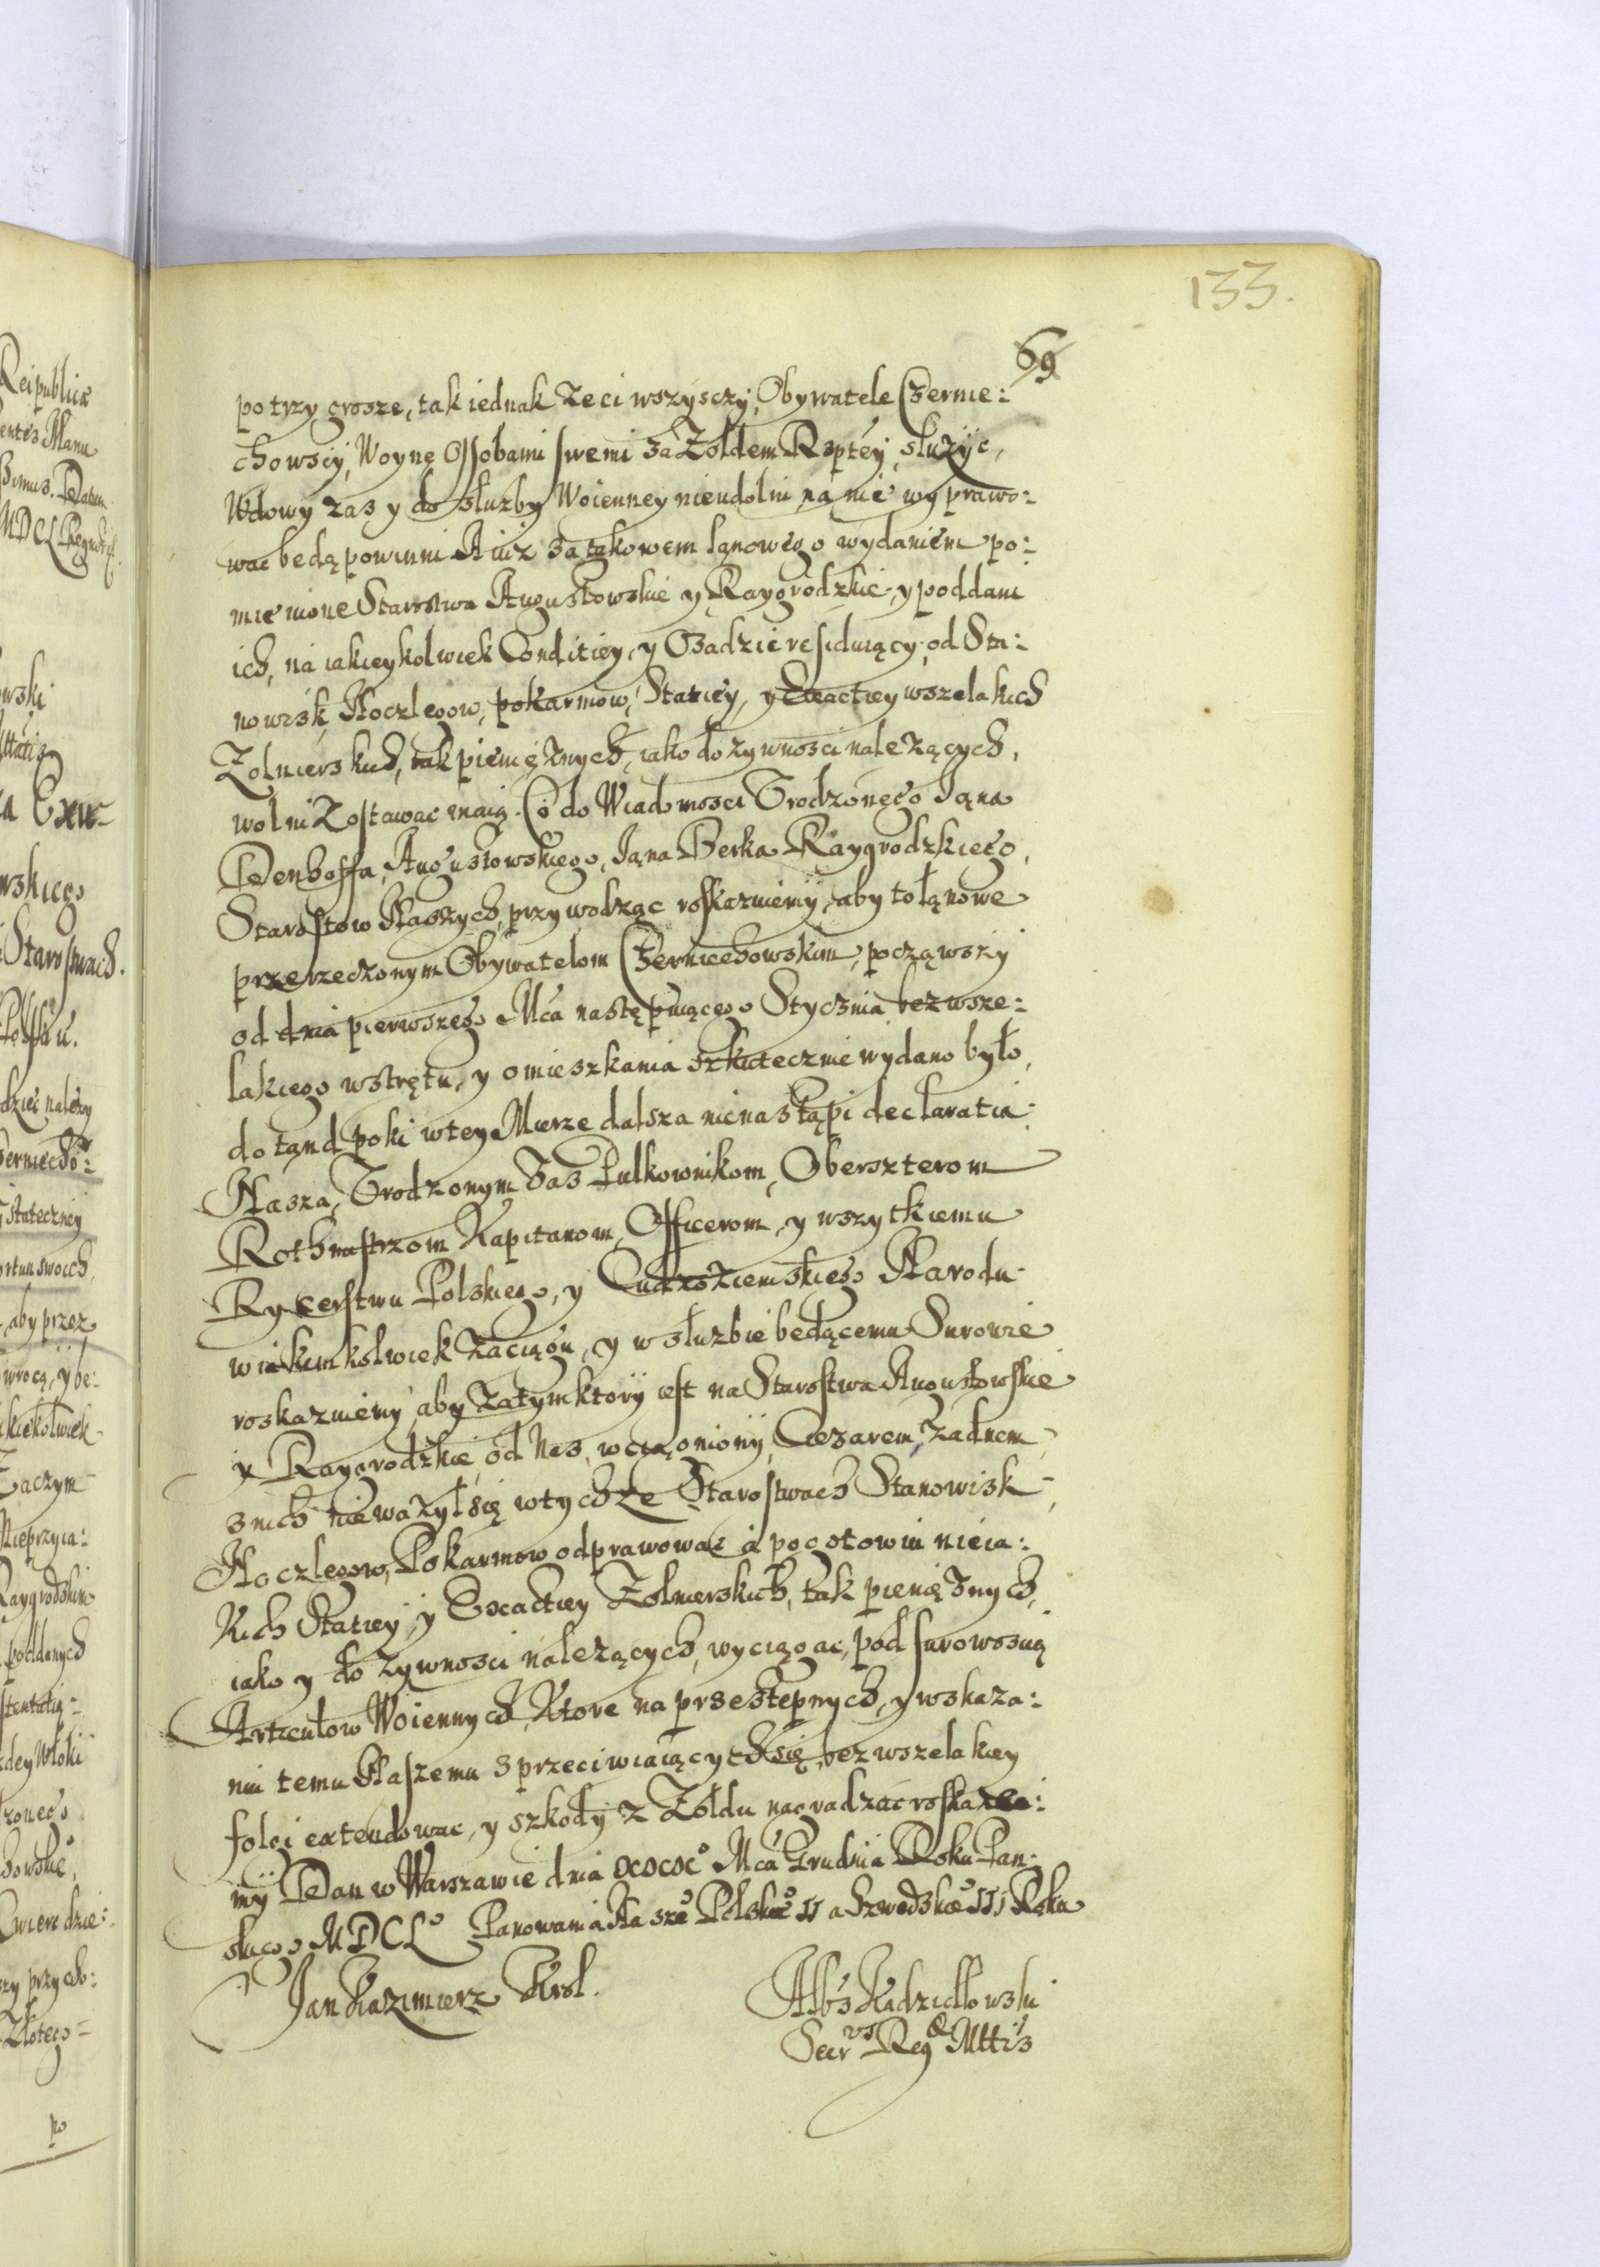 133.
69
po trzy grosze, tak iednak ze ci wszysczy, Obywatele Czernie:
chowscy, Woynę Ossobami swemi za Zołdem Rzptey, służyc,
Wdowy zas y do słuzby Woienney nieudolni, na nie wyprawo:
wac bedą powinni A iuz za takowem łąnowego wydaniem po:
mienione Starostwa Augustowskie y Raygrodzkie, y poddani
ich, na iakieykolwiek Conditiey, y Osadzie residuiący, od Sta:
nowisk, Noczlegow, pokarmow, Statiey, y Exactiey wszelakich
Zolnierskich, tak pieniężnych, iako do zywnosci nalezących,
wolni Zostawac maią. Co do Wiadomosci Vrodzonego Iąna
Denhoffa, Augustowskiego, Iąna Berka Raygrodzkiego,
Starostow Naszych, przywodząc rosskazuiemy, aby to łąnowe
przerzeczonym Obywatelom Czerniechowskim, począwszy
od dnia pierwszego Mca następuiącego Stycznia bez wsze:
lakiego wstrętu, y omieszkania szkutecznie wydano było,
do tąnd poki w tey Mierze dalsza nie nastąpi declaratia
Nasza, Vrodzonym Zas Pulkownikom, Oberszterom
Rothmastrzom Kapitanom, Officerom, y wszytkiemu
Rycerstwu Polskiego, y Cudzoziemskiego Narodu
w iakimkolwiek Zaciągu, y w słuzbie bedącemu Surowie
roskazuiemy, aby Zatym ktory iest na Starostwa Augustowskie
y Raygrodzkie, od Nas, wciągniony, Ciezarem, zadnem
z nich nie wazył się w tychze Starostwach Stanowisk
Noczlegow, Pokarmow odprawowac a pogotowiu nieia:
kich Statiey, y Exactiey Zolnierskich, tak pieniężnych,
iako y do zywnosci nalezących, wyciągac, pod surowoscią
Articułow Woiennych, Ktore na przestepnych, y wskaza:
niu temu Naszemu sprzeciwiaiących się, bez wszelakiey
folgi extendowac, y szkody z Zołdu nagradzac rosskaze:
my Dan w Warszawie dnia Mca Grudnia Roku Pan:
skiego MDCLo Panowania Naszeo Polskieo II a Szwedzkieo III Roku
Jan Kazimierz Krol.
Albs Kadzidłowski
Secrvs Reg Mttis